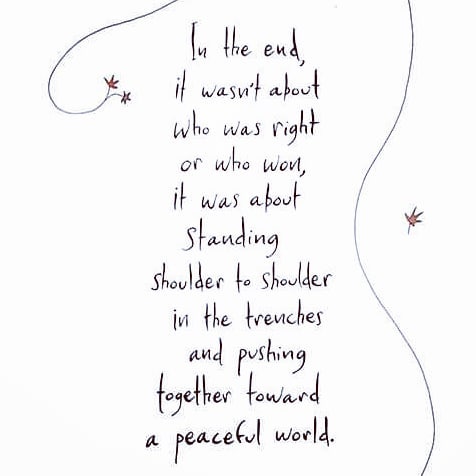 In the end,
it wasn't about
who was right
or who won,
it was about
standing
shoulder to shoulder
in the trenches
and pushing
together toward
a peaceful world.